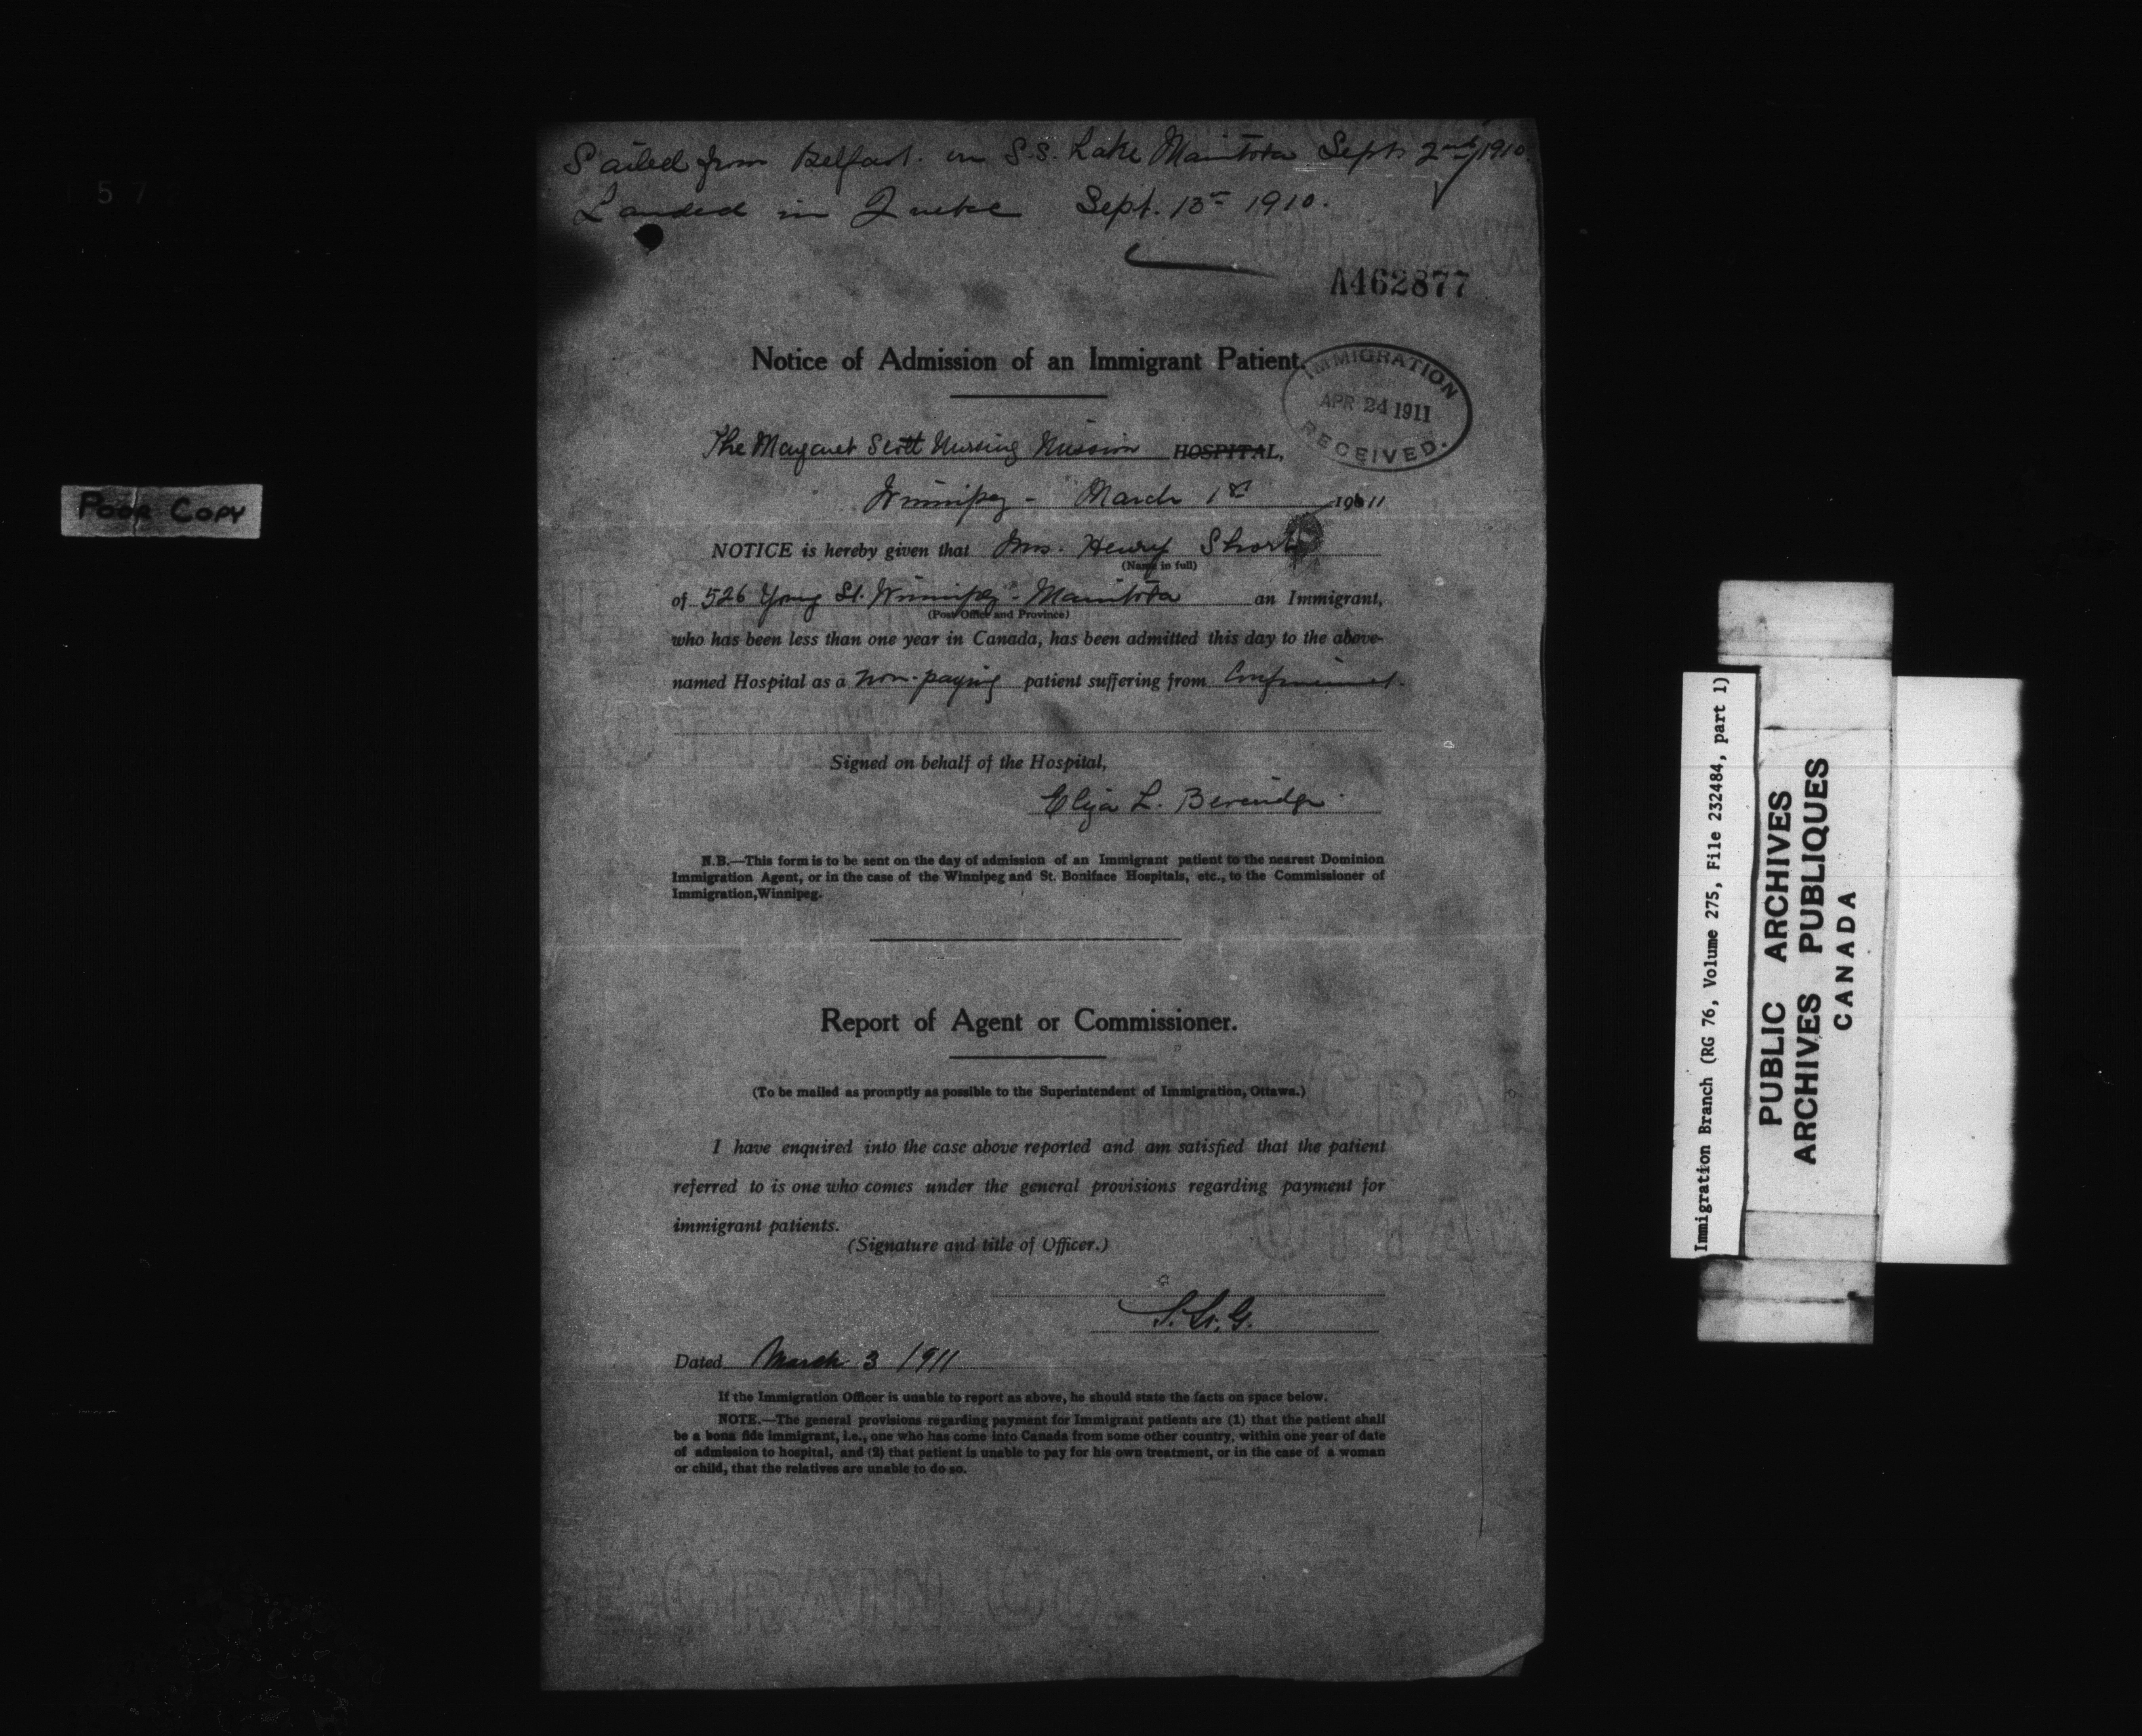 Sailed from Belfast. on S.S. Lake Manitoba Sept. 2nd/1910.
Landed in Quebec Sept. 13th 1910.
A462877
Notice of Admission of an Immigrant Patient.
IMMIGRATION
APR 24 1911
RECEIVED.
The Margaret Scott Nursing Mission HOSPITAL,
Winnipeg - March 1st 1911
NOTICE is hereby given that Mrs. Henry Short
(Name in full)
of 526 Young St. Winnipeg - Manitoba an Immigrant,
(Post Office and Province)
who has been less than one year in Canada, has been admitted this day to the above-
named Hospital as a non-paying patient suffering from Confinement.
Signed on behalf of the Hospital,
Eliza L. Beveridge
N.B.—This form is to be sent on the day of admission of an Immigrant patient to the nearest Dominion
Immigration Agent, or in the case of the Winnipeg and St. Boniface Hospitals, etc., to the Commissioner of
Immigration, Winnipeg.
Report of Agent or Commissioner.
(To be mailed as promptly as possible to the Superintendent of Immigration, Ottawa.)
I have enquired into the case above reported and am satisfied that the patient
referred to is one who comes under the general provisions regarding payment for
immigrant patients.
(Signature and title of Officer.)
Dated March 3 1911
If the Immigration Officer is unable to report as above, he should state the facts on space below.
NOTE.—The general provisions regarding payment for Immigrant patients are (1) that the patient shall
be a bona fide immigrant, i.e., one who has come into Canada from some other country, within one year of date
of admission to hospital, and (2) that patient is unable to pay for his own treatment, or in the case of a woman
or child, that the relatives are unable to do so.
572
Poor Copy
Immigration Branch (RG 76, Volume 275, File 232484, part 1)
PUBLIC ARCHIVES
ARCHIVES PUBLIQUES
CANADA